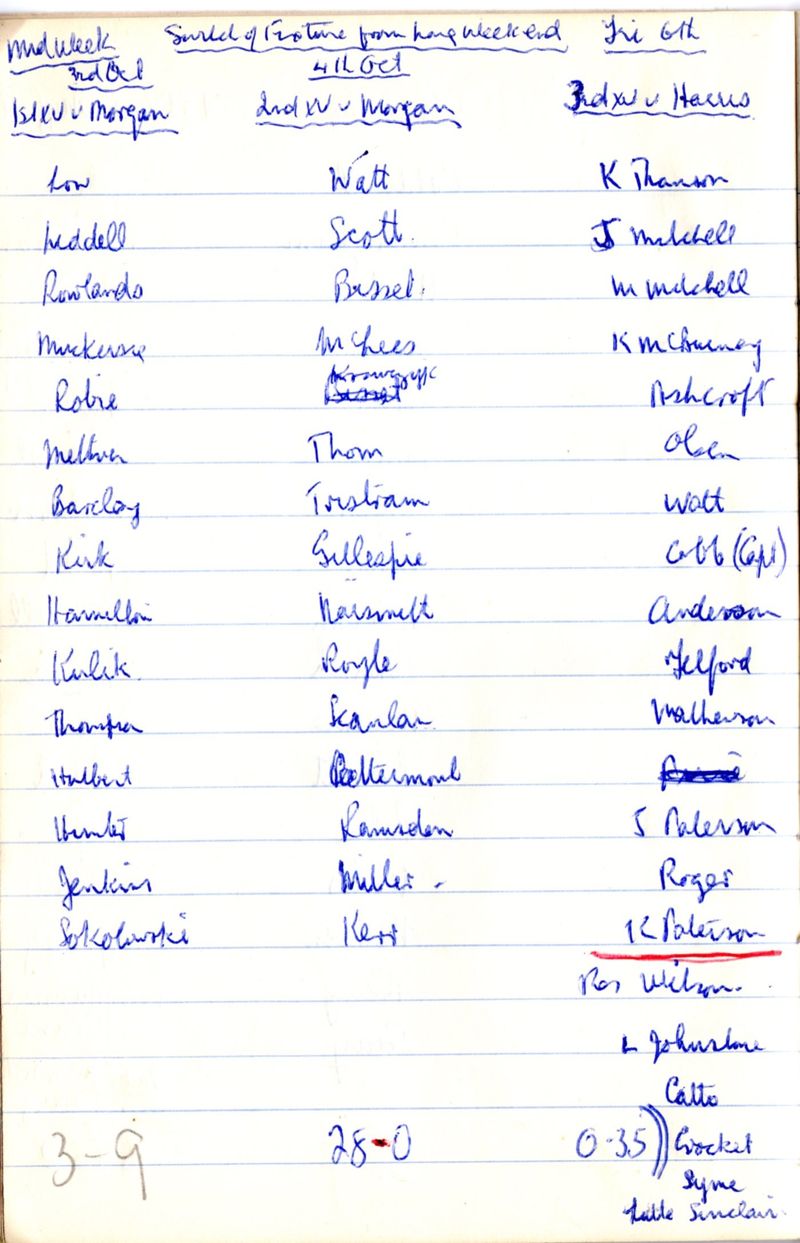 Mid Week from Long Weekend Fri 6th
3rd Oct 4th Oct
1st XV v Morgan 2nd XV v Morgan 3rd XV v Harris
Low Watt K Thomson
Liddell Scott. J Mitchell
Rowlands Bisset. M Mitchell
Muckersie McLees K McChesney
Krawczyk
Robie Ashcroft
Thom Olsen
Barclay Tristram Watt
Kirk Gillespie Cobb (Capt)
Hamilton Naismith Anderson
Kulik Royle Telford
Thompson Scanlan Matherson
Hulbert
Hunter Ramsden J Paterson
Jenkins Miller - Roger
Sokolowski Kerr K Paterson
Res Wilson.
L Johnstone
Catto
3-9 28-0 0-35 Crocket
Syme
Sinclair.